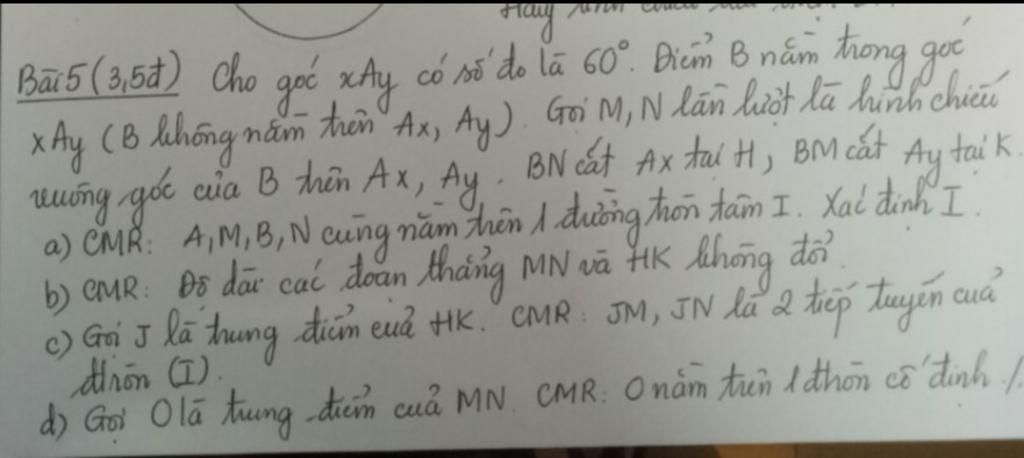 Hãy
Bài 5 (3,5đ) Cho góc xAy có số đo là 60°. Điểm B nằm trong góc
xAy (B không nằm trên Ax, Ay). Gọi M, N lần lượt là hình chiếu
vuông góc của B trên Ax, Ay. BN cắt Ax tại H, BM cắt Ay tại K.
a) CMR: A, M, B, N cùng nằm trên 1 đường tròn tâm I. Xác định I.
b) CMR: Độ dài các đoạn thẳng MN và HK không đổi.
c) Gọi J là trung điểm của HK. CMR: JM, JN là 2 tiếp tuyến của
đtròn (I).
d) Gọi O là trung điểm của MN. CMR: O nằm trên 1 đtròn cố định ./.